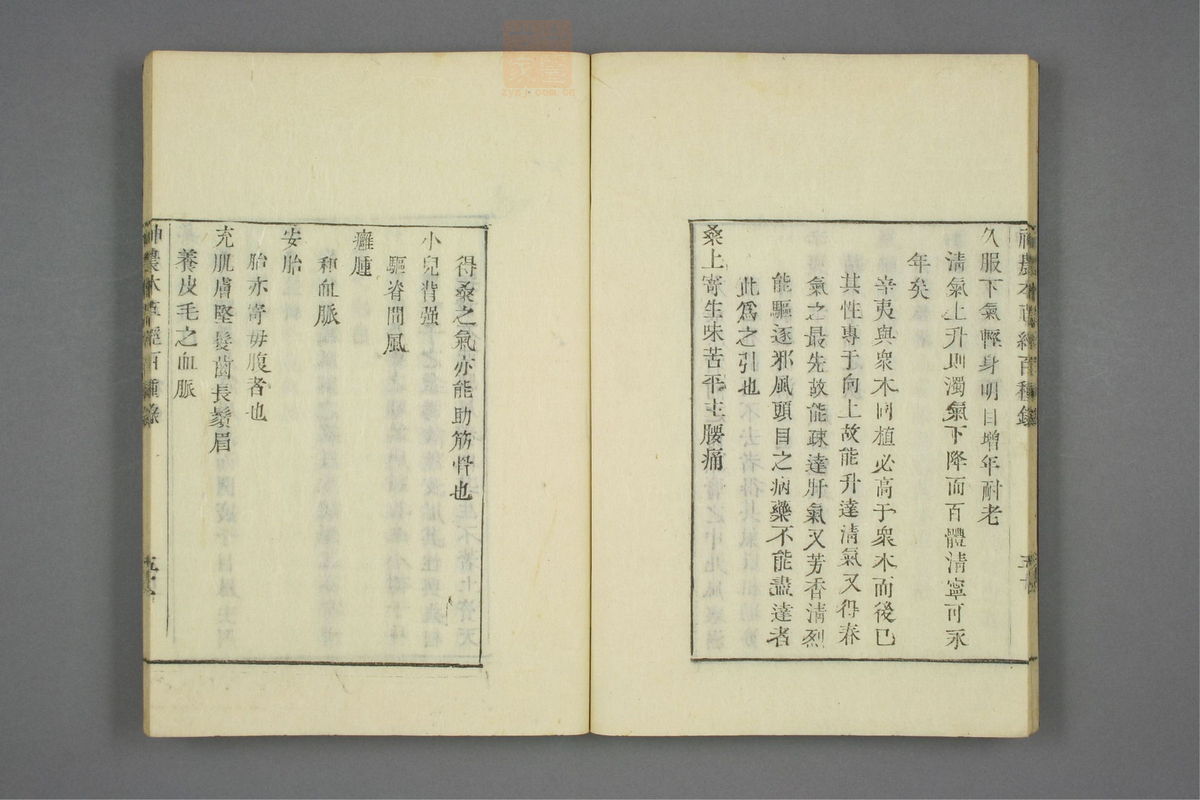 久服下氣輕身明目增年耐老
清氣上升則濁氣下降而百體清寧可永
年矣
辛夷與衆木同植必高于衆木而後已
其性專于向上故能升達清氣又得春
氣之最先故能疎達肝氣又芳香清烈
能驅逐邪風頭目之病藥不能盡達者
此爲之引也
桑上寄生味苦平主腰痛
得桑之氣亦能助筋骨也
小兒背强
驅脊間風
癰腫
和血脈
安胎
胎亦寄母腹者也
充肌膚堅髮齒長鬚眉
養皮毛之血脈
神農本草經百種錄
zysj.com.cn